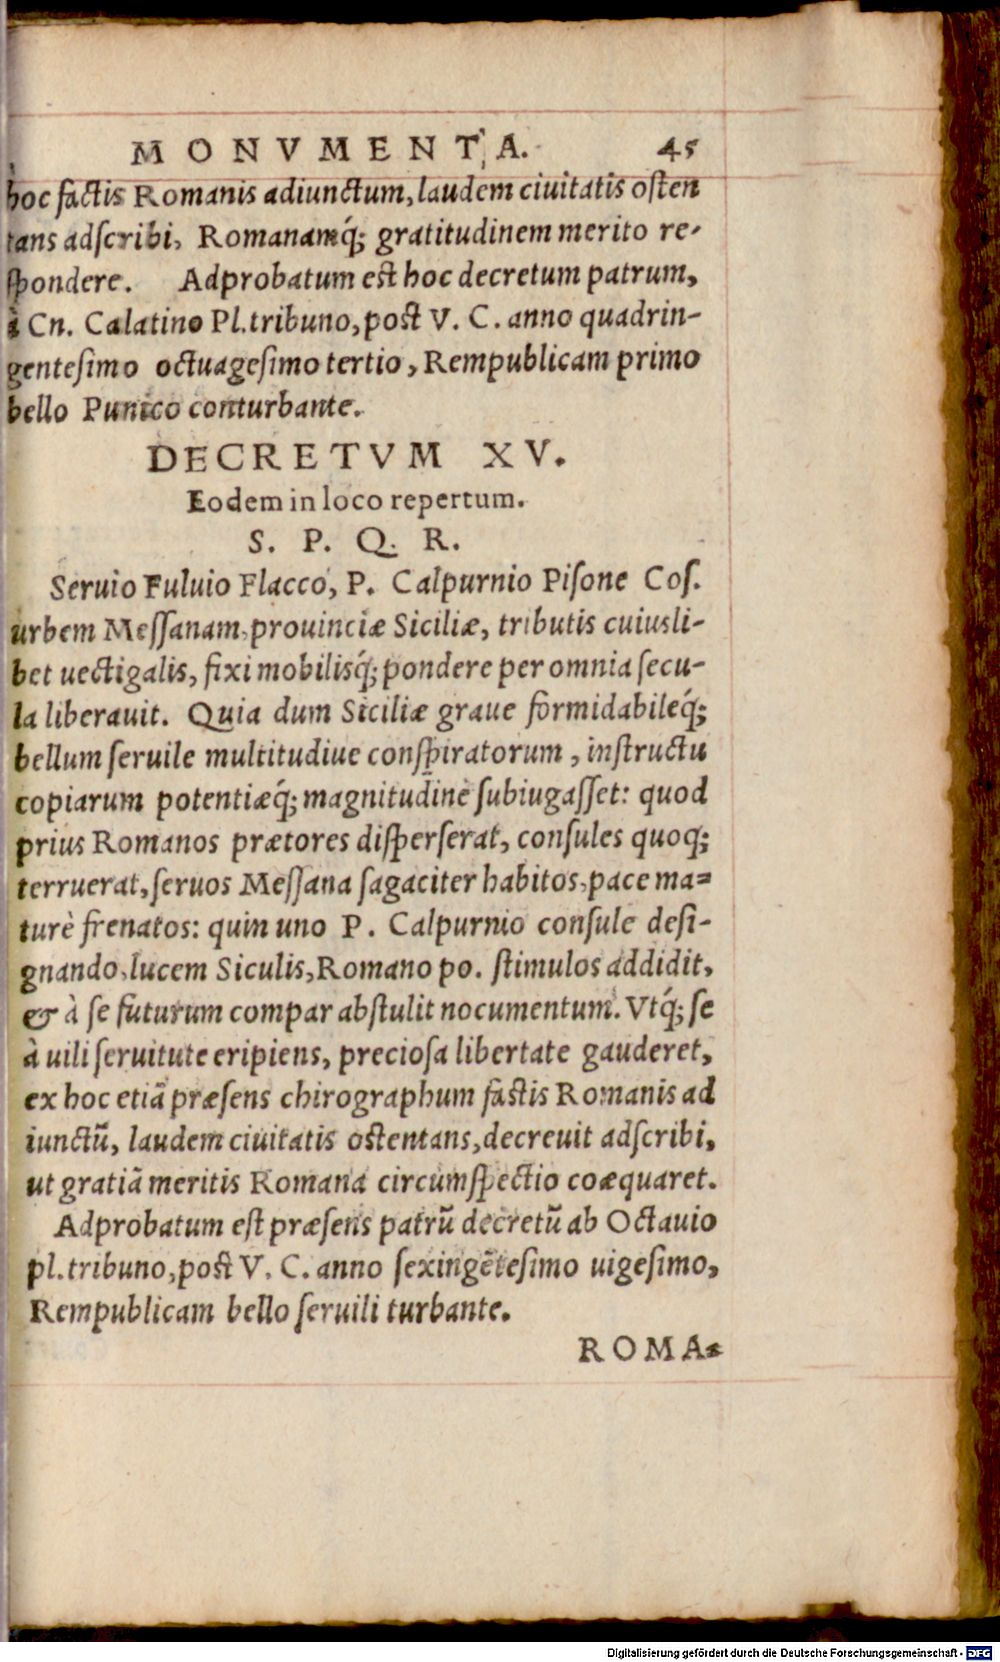 MONVMENTA. 45
hoc factis Romanis adiunctum, laudem ciuitatis osten
tans adscribi, Romanamq́; gratitudinem merito re-
spondere. Adprobatum est hoc decretum patrum,
à Cn. Calatino Pl.tribuno, post V. C. anno quadrin-
gentesimo octuagesimo tertio, Rempublicam primo
bello Punico conturbante.
DECRETVM XV.
Eodem in loco repertum.
S. P. Q. R.
Seruio Fuluio Flacco, P. Calpurnio Pisone Cos.
urbem Messanam, prouinciæ Siciliæ, tributis cuiusli-
bet uectigalis, fixi mobilisq́; pondere per omnia secu-
la liberauit. Quia dum Siciliæ graue formidabileq́;
bellum seruile multitudiue conspiratorum, instructu
copiarum potentiæq́; magnitudine subiugasset: quod
prius Romanos prætores disperserat, consules quoq;
terruerat, seruos Messana sagaciter habitos, pace ma=
turè frenatos: quin uno P. Calpurnio consule desi-
gnando, lucem Siculis, Romano po. stimulos addidit,
& à se futurum compar abstulit nocumentum. Vtq́; se
à uili seruitute eripiens, preciosa libertate gauderet,
ex hoc etiā præsens chirographum factis Romanis ad
iunctū, laudem ciuitatis ostentans, decreuit adscribi,
ut gratiā meritis Romana circumspectio coæquaret.
Adprobatum est præsens patrū decretū ab Octauio
pl.tribuno, post V. C. anno sexingētesimo uigesimo,
Rempublicam bello seruili turbante.
ROMA=
Digitalisierung gefördert durch die Deutsche Forschungsgemeinschaft - DFG